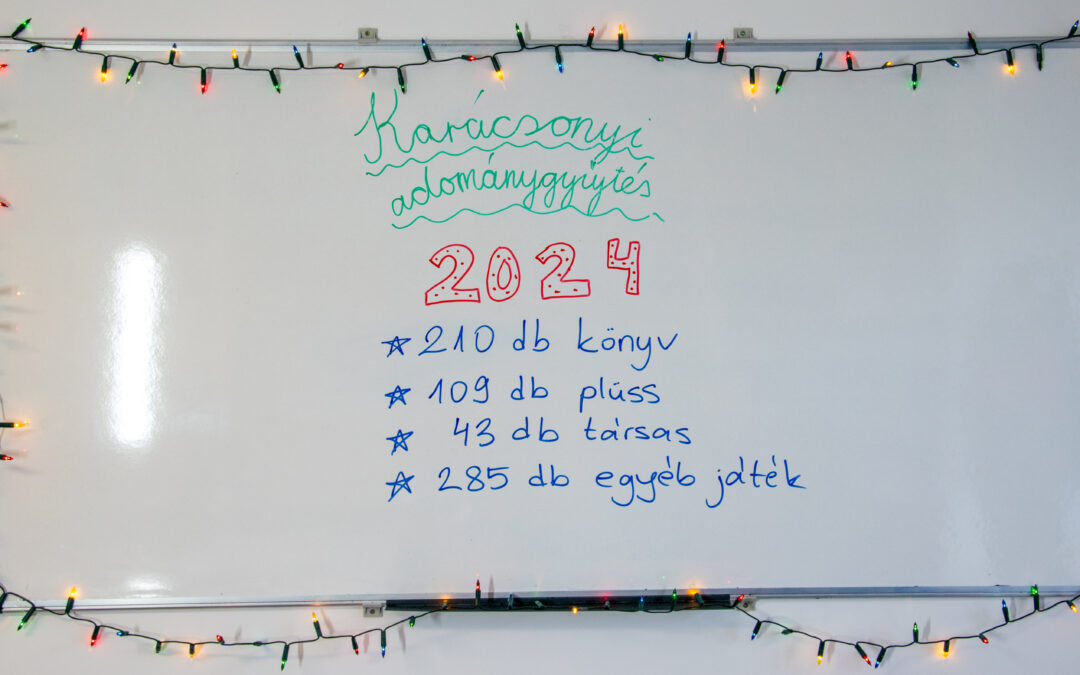 Karácsonyi
adománygyűjtés
2024
210 db könyv
109 db plüss
43 db társas
285 db egyéb játék